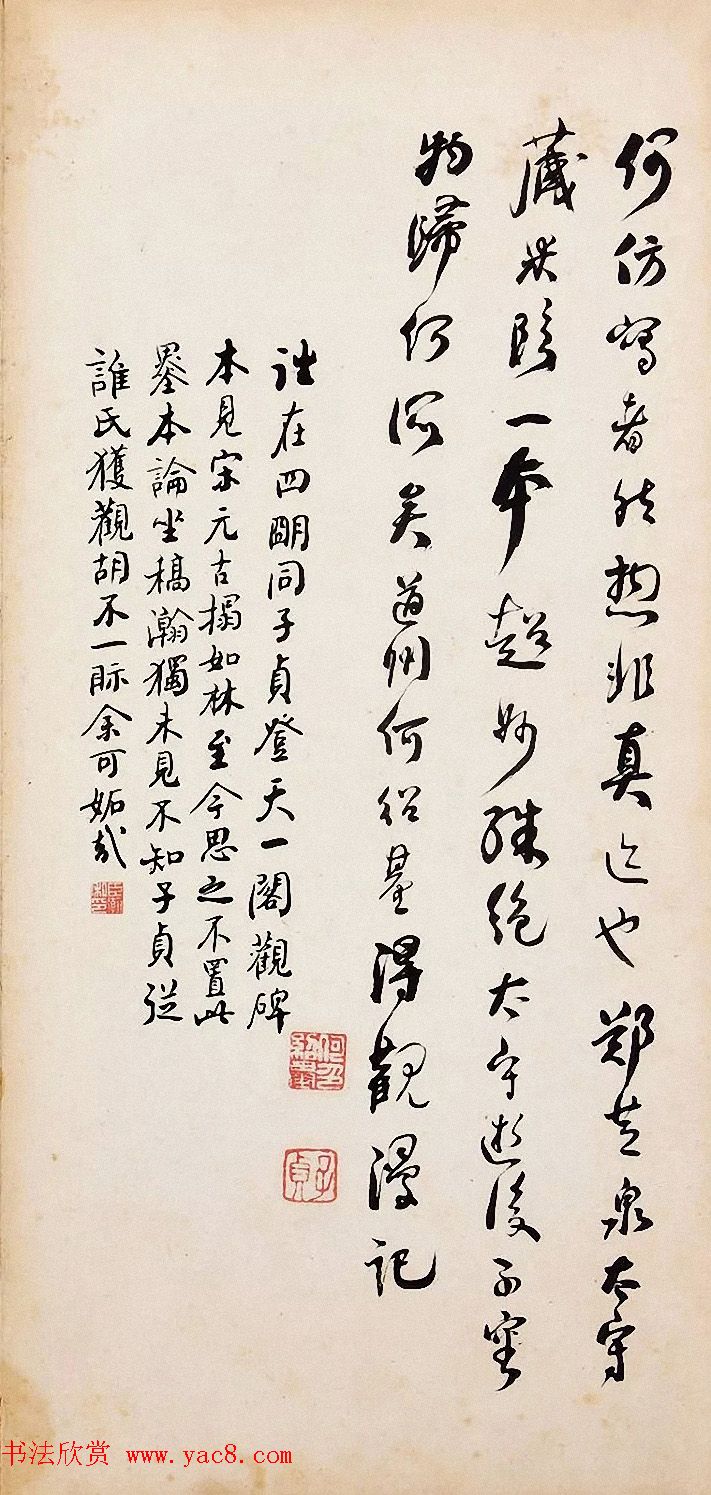 何仿寫者能想非真迹也鄭芝泉太守
藏米臨一本超妙殊絕太守逝後不審
物歸何所矣道州何紹基得觀漫記
在四明同子貞登天一閣觀碑
本見宋元古搨如林至今思之不置此
墨本論坐稿瀚獨未見不知子貞從
誰氏獲觀胡不一眎余可妬哉
何紹基
子貞
书法欣赏 www.yac8.com